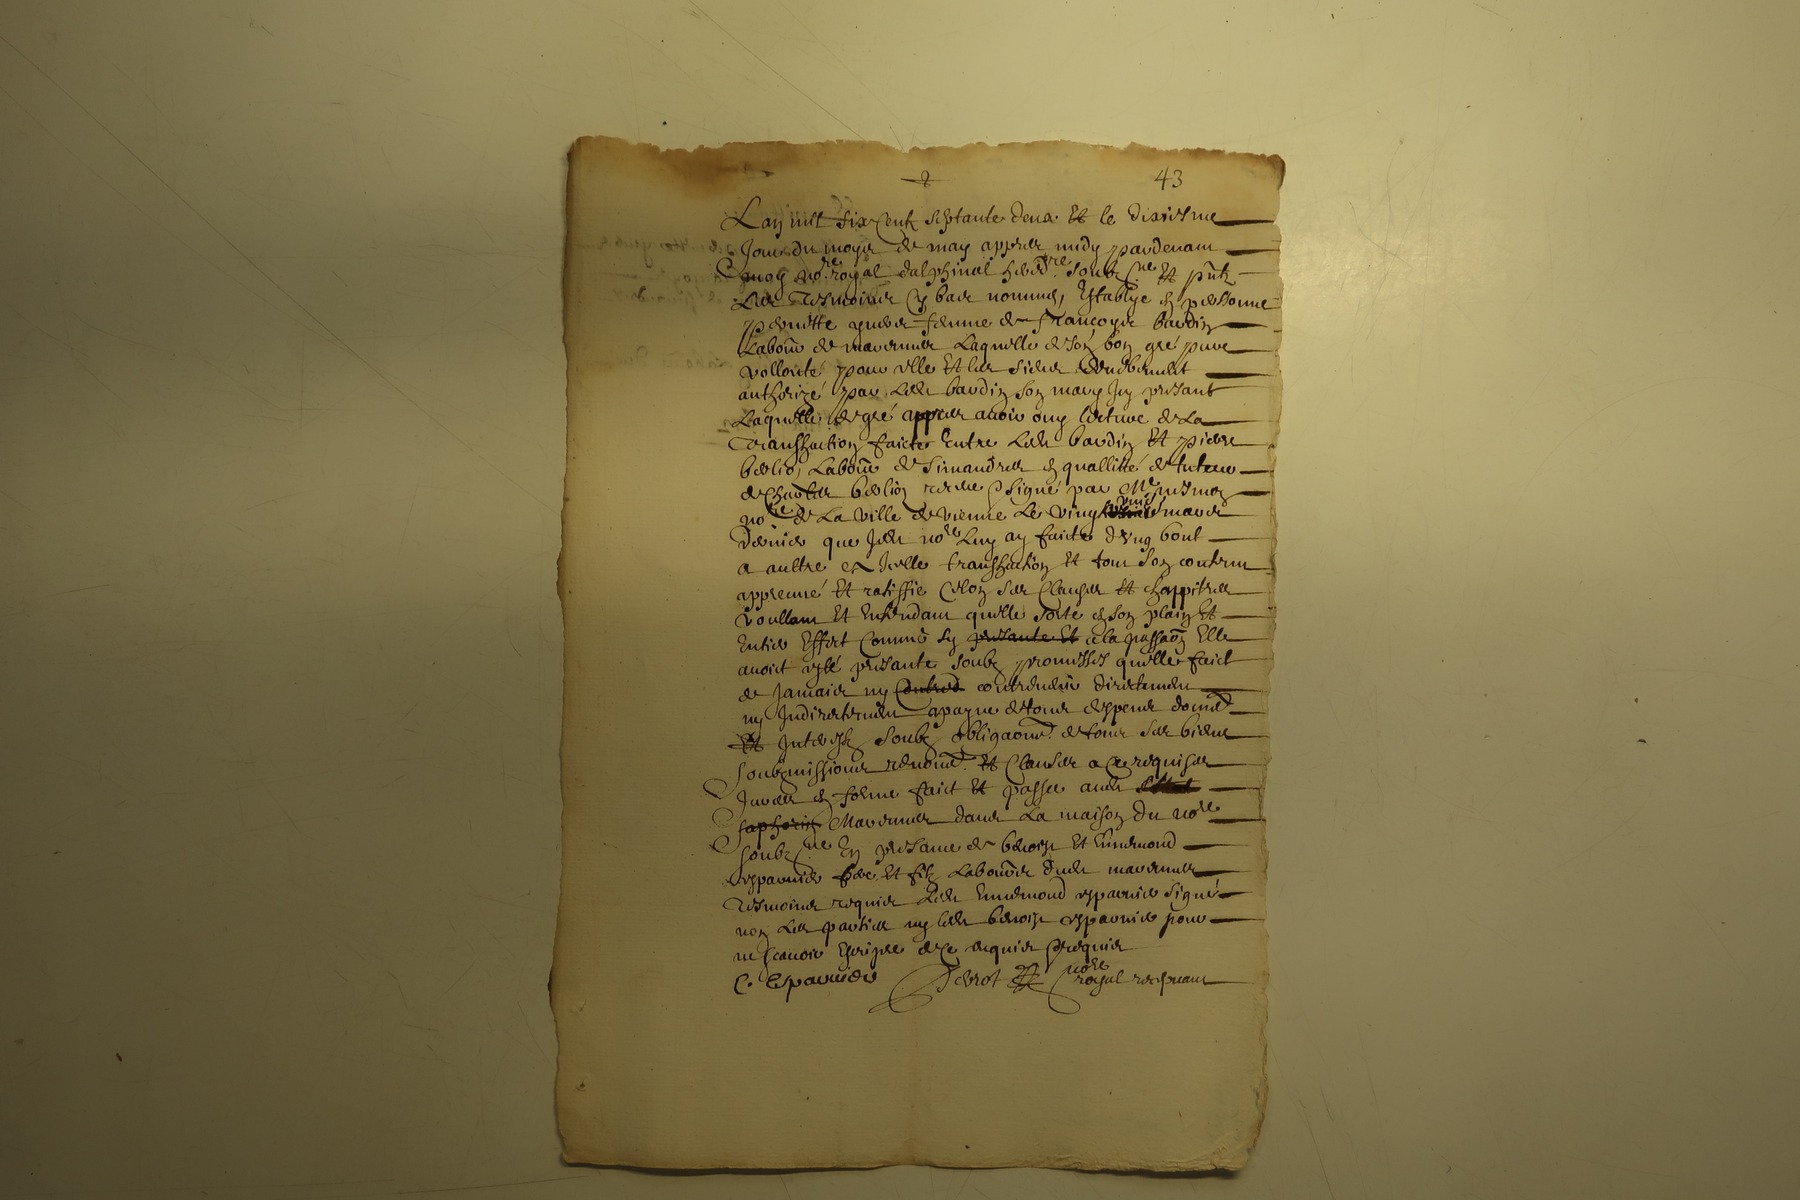 43
Lan mil six centz septante deux Et le dixiesme
Jour du moys de may appres midy pardevant
moy no.re royal dalphinal hered.re soubz.ne Et pntz
Les tesmoins cy bas nommes, Establye en personne
femme de françoys bardin
Labour de mavennes Laquelle de son bon gré pure
vollonté pour elle Et les siens deuebment
authorizé par Led bardin son mary Icy present
Laquelle de gré appres avoir ouy lecture de La
Transhaction faicte Entre Led bardin Et pierre
berlio, Labour de Simandres en quallitté de tuteur
de Charles berlioz signé par Me
no.re de La ville de vienne Le vingt mars
dernier que Jed no.re Luy ay faicte dung bout
a aultre en Icelle transhaction Et tout son contenu
appreuué Et ratiffie Celon ses Clauses Et chappitres
voullant Et Entendant quelle sorte en son plain Et
Entier Effect Comme sy presante Et a la passaon Elle
avoict esté presante soubz promesses quelle faict
de Jamais ny contrevenir directemen
ny Indirectemen a payne de tous despens dom
Et Interestz soubz obligaon de tous ses biens
soubzmissions renon Et Clauses a ce requises
Jures en forme faict Et passé aud
saphorin Mavennes dans La maison du no.re
soubz.ne En presance de benoist Et Ennemond
esparnier pere Et filz Laboures dud mavennes
Tesmoins requis Led Ennemond esparnier signé
non Les parties ny led benoist esparnier pour
ne scavoir Escripre de ce enquis Et requis
C. Esparnier no.re royal recepvant